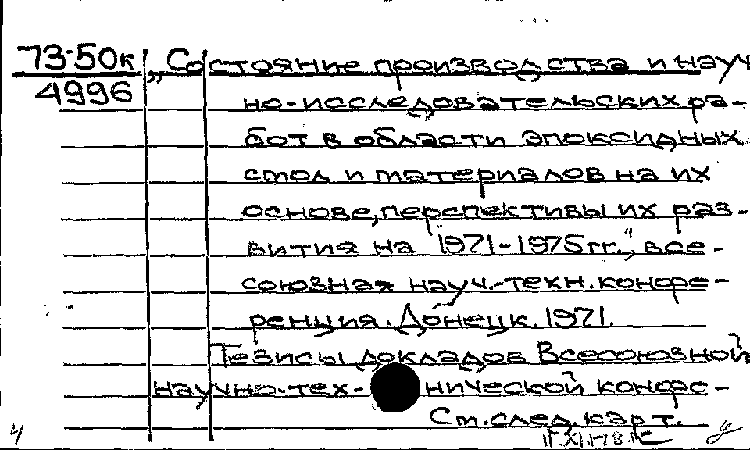 73-50к „Состояние производства и науч
4996 но-исследовательских ра-
бот в области эпоксидных
смол и материалов на их
основе, перспективы их раз-
вития на 1971-1975 гг.", все-
союзная науч.-техн. конфе-
ренция. Донецк. 1971.
Тезисы докладов Всесоюзной
научно-тех-нической конфе-
См. след. карт.